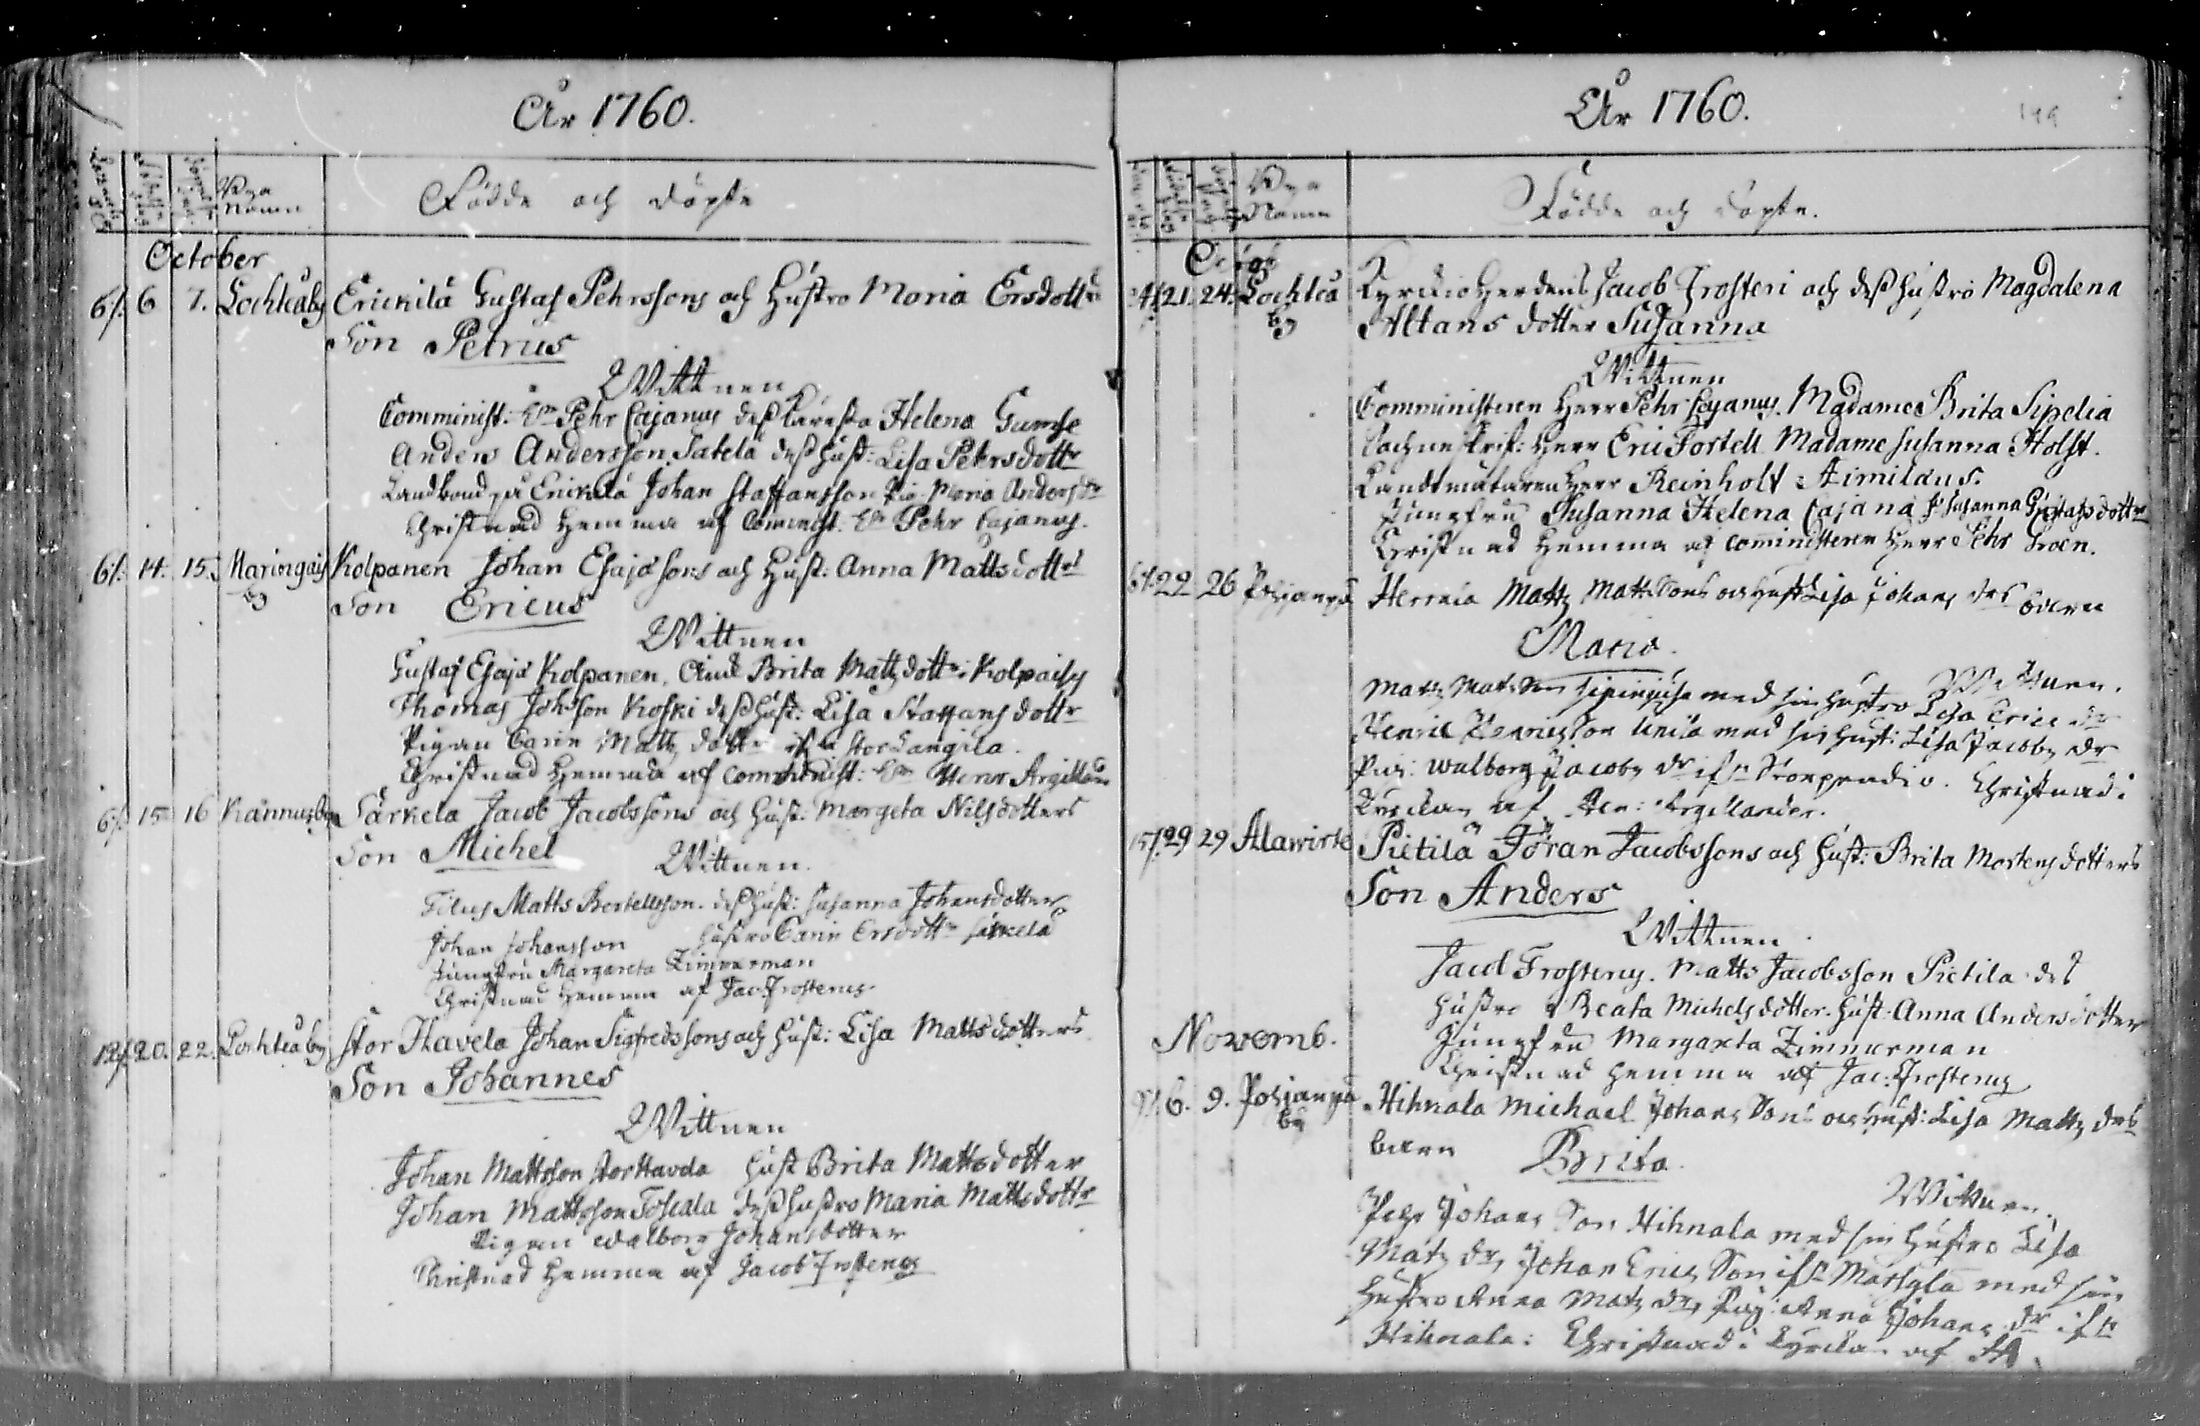 År 1760.
Bya Namn
Födde och döpte
October
6/. 6 7. Lochteåby Erickilä Gustaf Pehrssons och Hustro Maria Ersdottrs
Son Petrus
Wittnen
Comminist: Hr Pehr Cajanus dess käresta Helena Gumse
Anders Andersson Jatela dess hust: Lisa Pehrsdottr
Landbond på Erickilä Johan Staffansson Pig. Maria Andersdr
Christnad hemma af Comminist. Hr Pehr Cajanus.
6/. 14. 15. Maringais by Kolpanen Johan Esajæsons och Hust: Anna Mattsdottrs
Son Ericus
Wittnen
Gustaf Esajæ Kolpanen, Brita Mattsdottr Kolpaisy
Thomas Johsson Koski dess hust: Lisa Staffansdottr
Pigan Carin Matts dotter ifrån Stor Längilä.
Christnad hemma af Comminist: Hr Henr Argillan
6/. 15 16 Kannusby Särkelä Jacob Jacobssons och Hust: Margeta Nilsdotters
Son Michel
Wittnen.
Matts Bertellsson. dess hust: Susanna Johansdotter
Johan Johansson hustro Carin Ersdottr Särkelä
Jungfru Margareta Zimmerman
Christnad hemma af Jac: Frosterus.
12/. 20. 22. Lochteåby Stor Havela Johan Sigfredssons och Hust: Lisa Mattsdotters
Son Johannes
Wittnen
Johan Mattsson Storhavela hust Brita Mattsdotter
Johan Mattsson Toscala dess hustro Maria Mattsdottr
Pigan Walborg Johansdotter
Christnad hemma af Jacob Frosterus
År 1760.
Bya Namn
Födde och döpte.
21. 24. Lochteå by Kyrckioherdens Jacob Frosteri och dess hustro Magdalena
Altans dotter Susanna
Wittnen
Comministeren Herr Pehr Cajanus. Madame Brita Sipelia
Herr Eric Fortell Madame Susanna Holst.
Landtmätaren Herr Reinholt Aimilæus.
Jungfru Susanna Helena Cajana Jr Susanna Gustafsdottr
Christnad hemma af Comministeren Herr Pehr
22 26 Pohjanpä Herrala Matts Mattssons och Hust Lisa Johans drs barn
Maria.
Wittnen.
Matts Matsson med sin hustro Lisa Erics dr
Henric Henricsson med sin hust: Lisa Jacobs dr
Pig: Walborg Jacobs dr ifrån. Christnad i
Kyrckan af Hen: Argillander.
15/. 29 29 Alawirte Pietilä Jöran Jacobssons och Hust: Brita Mortens dotters
Son Anders
Wittnen
Jacob Frosterus. Matts Jacobsson Pietila des
hustro Beata Michelsdotter. hust: Anna Andersdotter
Jungfru Margareta Zimmerman
Christnad hemma af Jac: Frosterus
Novemb.
6. 9. Pohjanpä by Hihnala Michael Johans Sons och hust: Lisa Matts drs
barn Brita.
Wittnen.
Pehr Johans Son Hihnala med sin hustro Lisa
Mats dr, Johan Erics Son ifrån med sin
hustro Anna Mats dr, Pig: Anna Johans dr ifrån
Hihnala: Christnad i Kyrckan af HA.